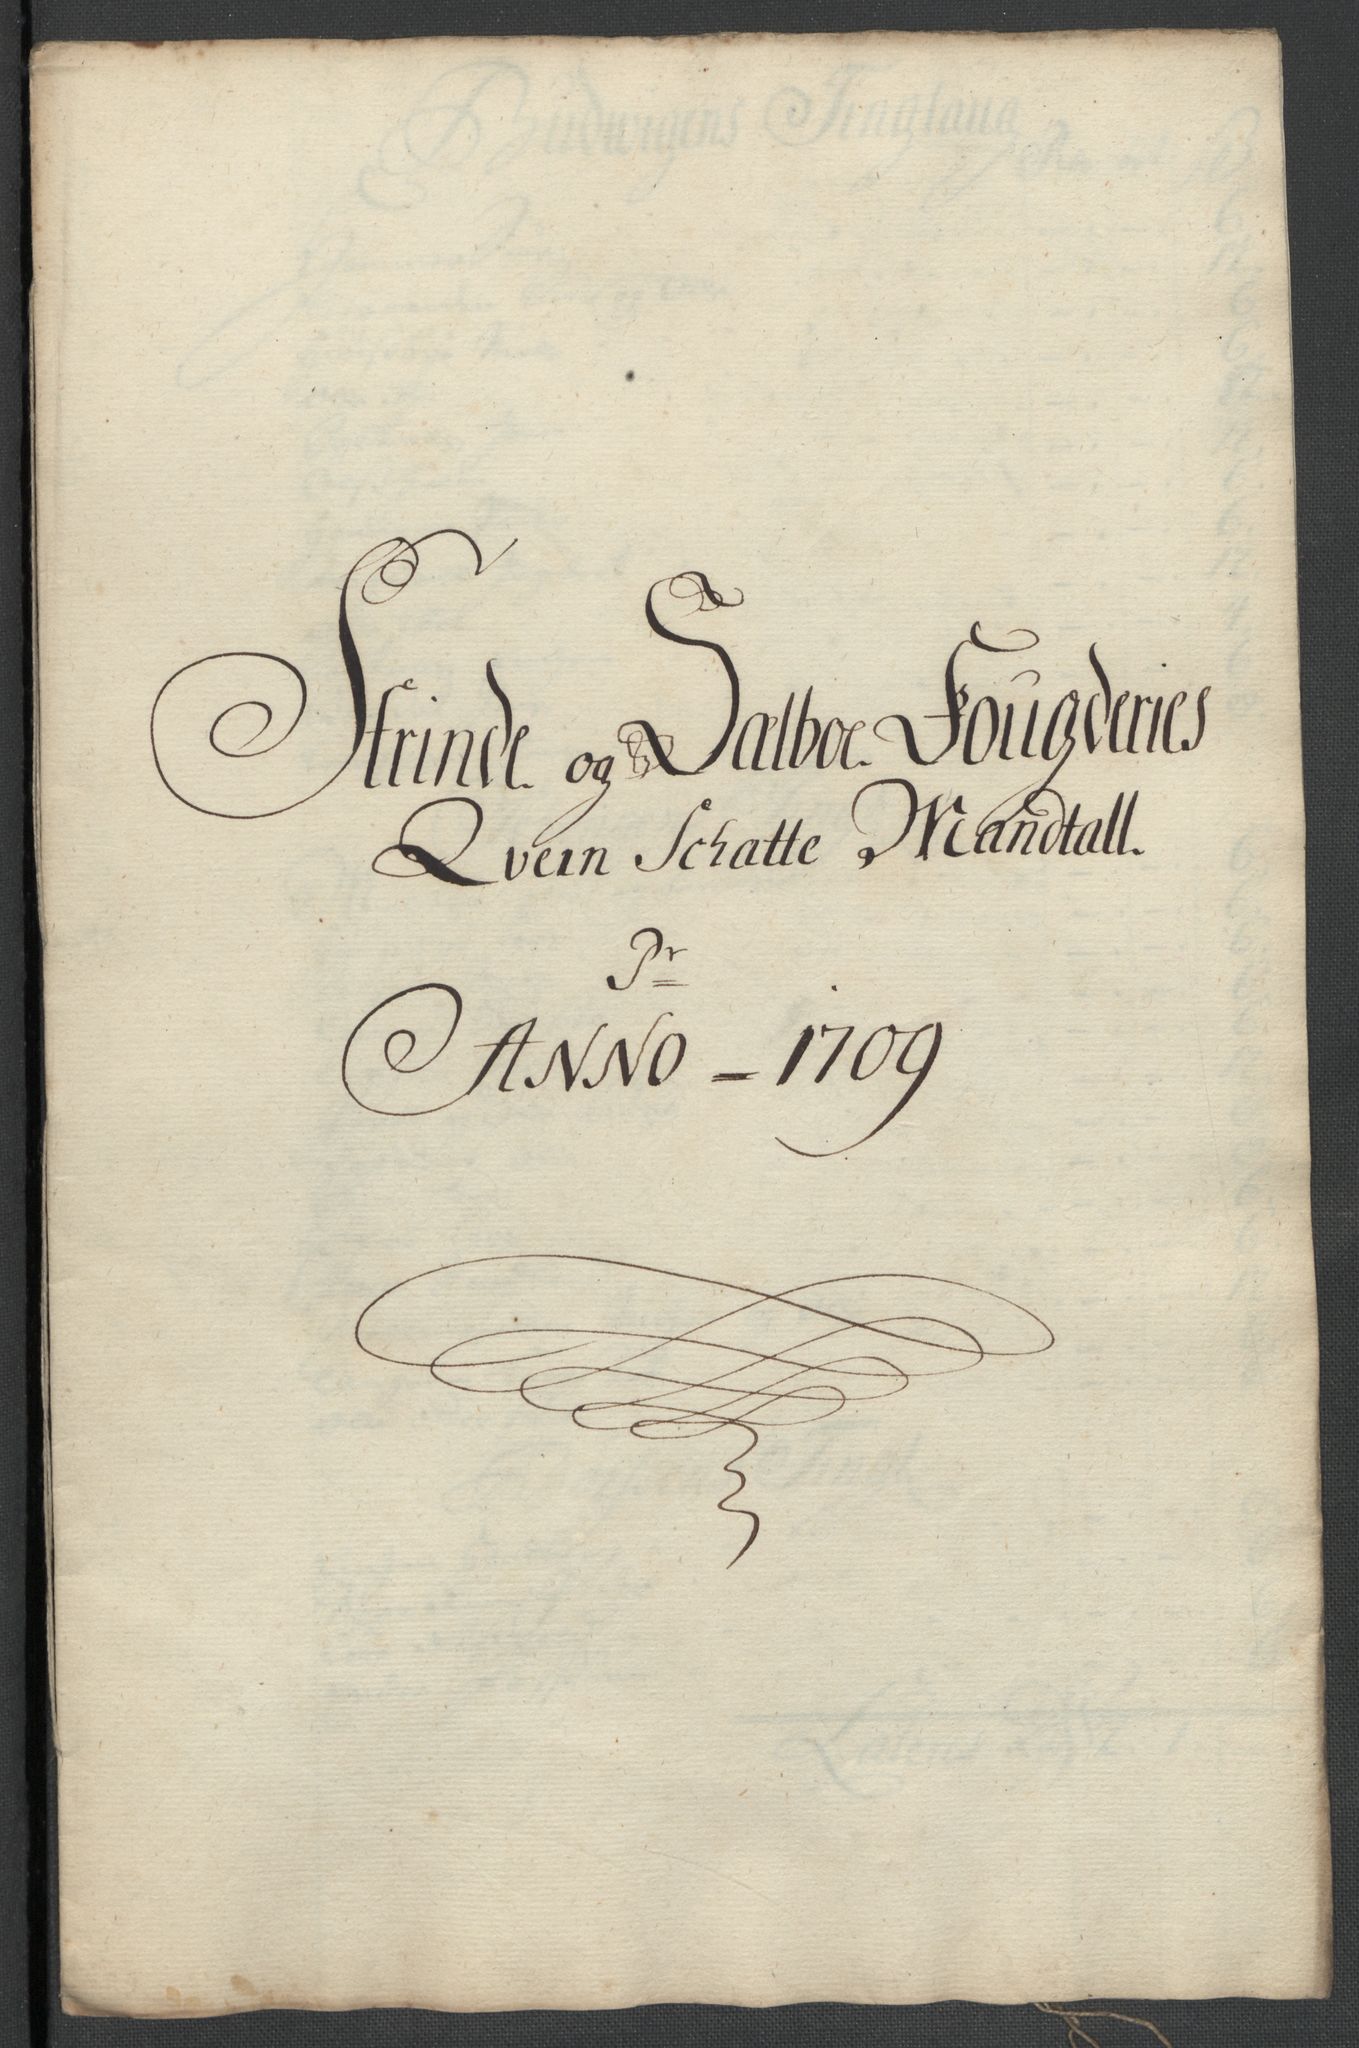 Strinde og Sælboe Fougderies
Qvern Schatte Mandtall.
Pr
ANNO - 1709